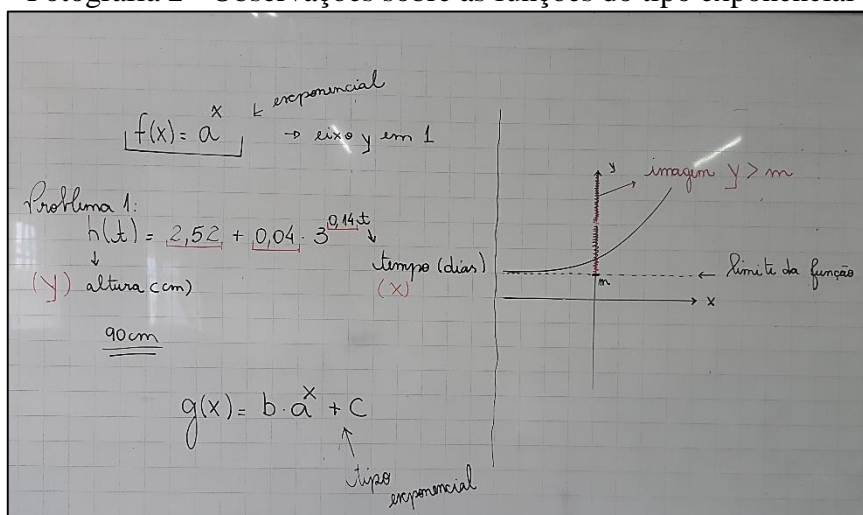 Fotografia 2 – Observações sobre as funções do tipo exponencial
f(x) = a^x ← exponencial
→ eixo y em 1
Problema 1:
h(t) = 2,52 + 0,04 · 3^0,14t
tempo (dias)
(x)
(y) altura (cm)
90cm
g(x) = b · a^x + c
tipo exponencial
y
imagem y > m
← limite da função
m
x